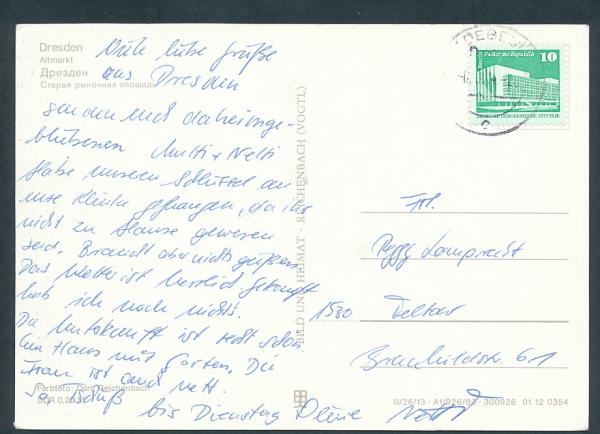 Dresden
Altmarkt
Дрезден
Старая рыночная площадь
Viele liebe Grüße
aus Dresden
senden euch daheimge-
bliebenen Mutti + Netti
Habe unseren Schlüssel an
eure Klinke gehangen, da ihr
nicht zu Hause gewesen
seid. Braucht aber nicht gießen
Das Wetter ist herrlich gekauft
hab ich noch nichts.
Die Unterkunft ist sehr schön.
Ein Haus mit Garten. Die
Frau ist auch nett.
So, Tschüß
bis Dienstag Deine Netti
Farbfoto: Darr, Reichenbach
DDR 0,20
BILD UND HEIMAT · REICHENBACH (VOGTL)
Palast der Republik
10
DEUTSCHE DEMOKRATISCHE REPUBLIK
Frl.
Peggy Lamprecht
1530 Teltow
6.1
III/26/13 · A1/926/83 · 300926 01 12 0354